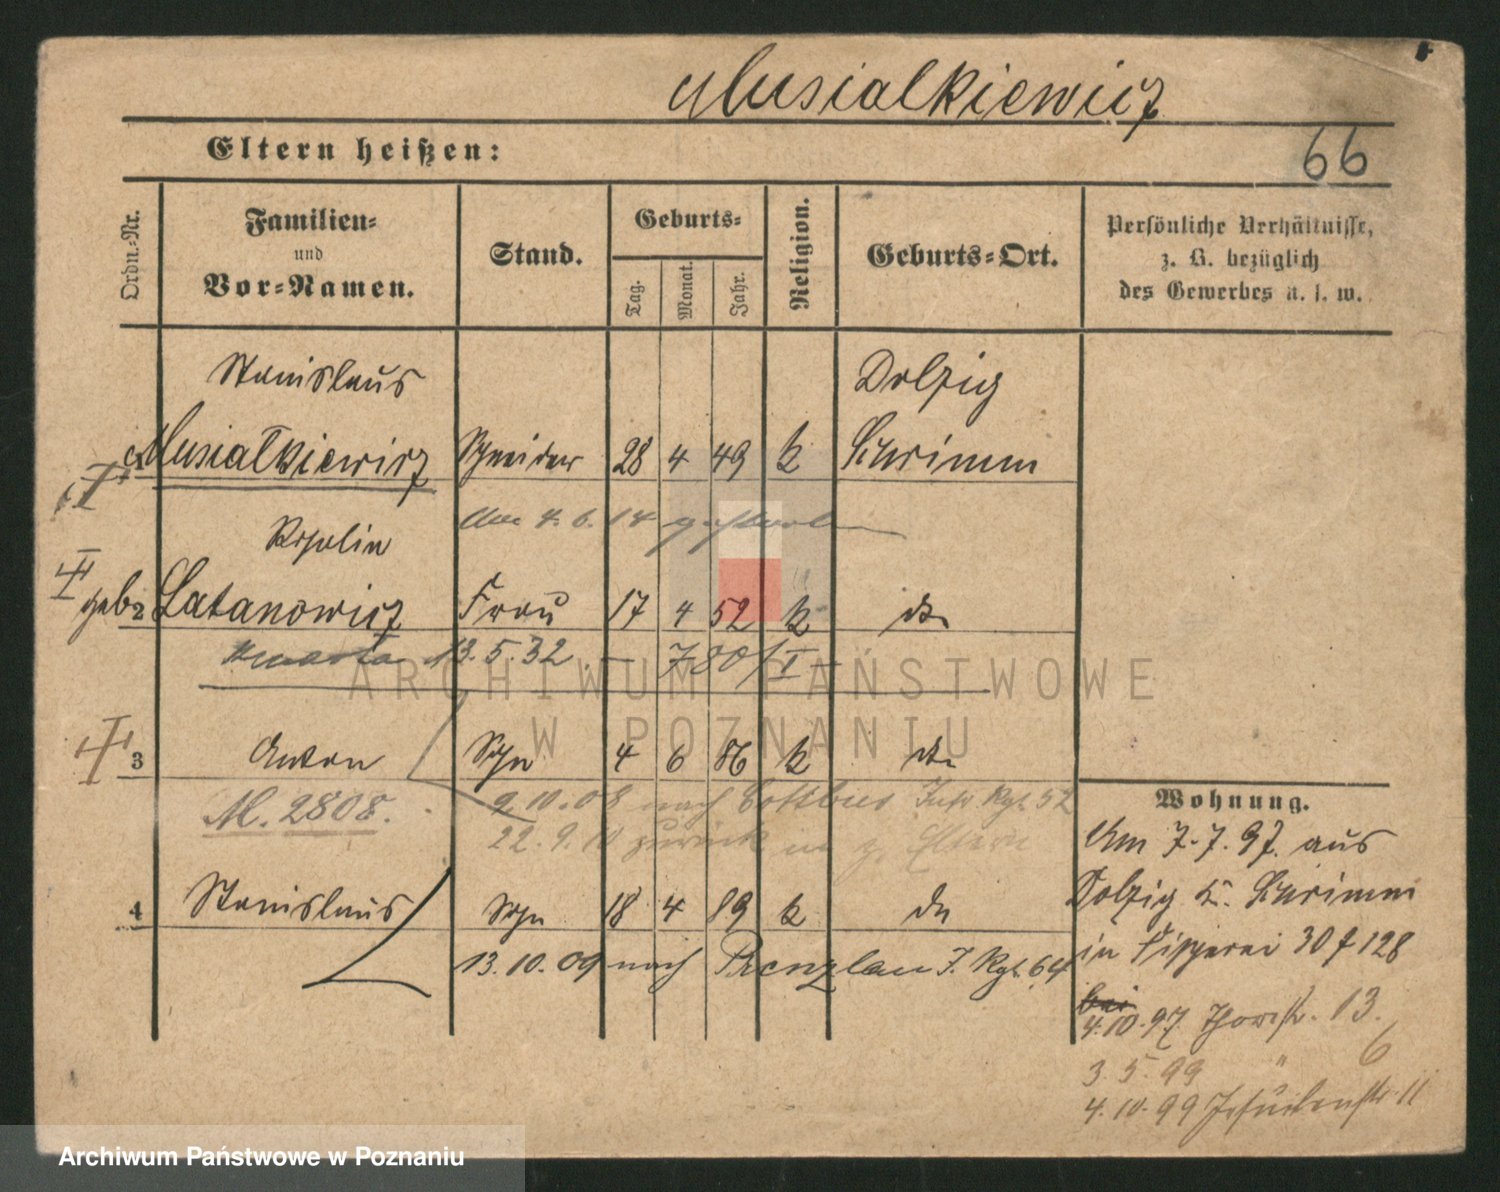 Musialkiewicz
Eltern heißen:
66
Ordn.-Nr.
Familien-
und
Vor-Namen.
Stand.
Geburts-
Tag.
Monat.
Jahr.
Religion.
Geburts-Ort.
Persönliche Verhältnisse,
z. B. bezüglich
des Gewerbes u. s. w.
Stanislaus
Dolzig
Musiałkiewicz Schneider 28 4 49 k Schrimm
Am 4. 6. 14 gestorben
Rosalin
geb. 2 Latanowicz Frau 17 4 52 k do
zmarła 13.5.32 — 780/I
3 Anton Sohn 4 6 86 k do
M. 2808.
9.10.08 nach Cottbus Inft Rgt 52
22.9.10 zurück z. Eltern
4 Stanislaus Sohn 18 4 89 k do
13.10.09 nach Prenzlau I. Rgt. 64
Wohnung.
Am 7.7.97. aus
Dolzig K. Schrimm
in Fischerei 30 f 128
bei
4.10.97 Thorstr. 13.
3.5.99 " 6
4.10.99 Jesuitenstr. 11
ARCHIWUM PAŃSTWOWE
W POZNANIU
Archiwum Państwowe w Poznaniu